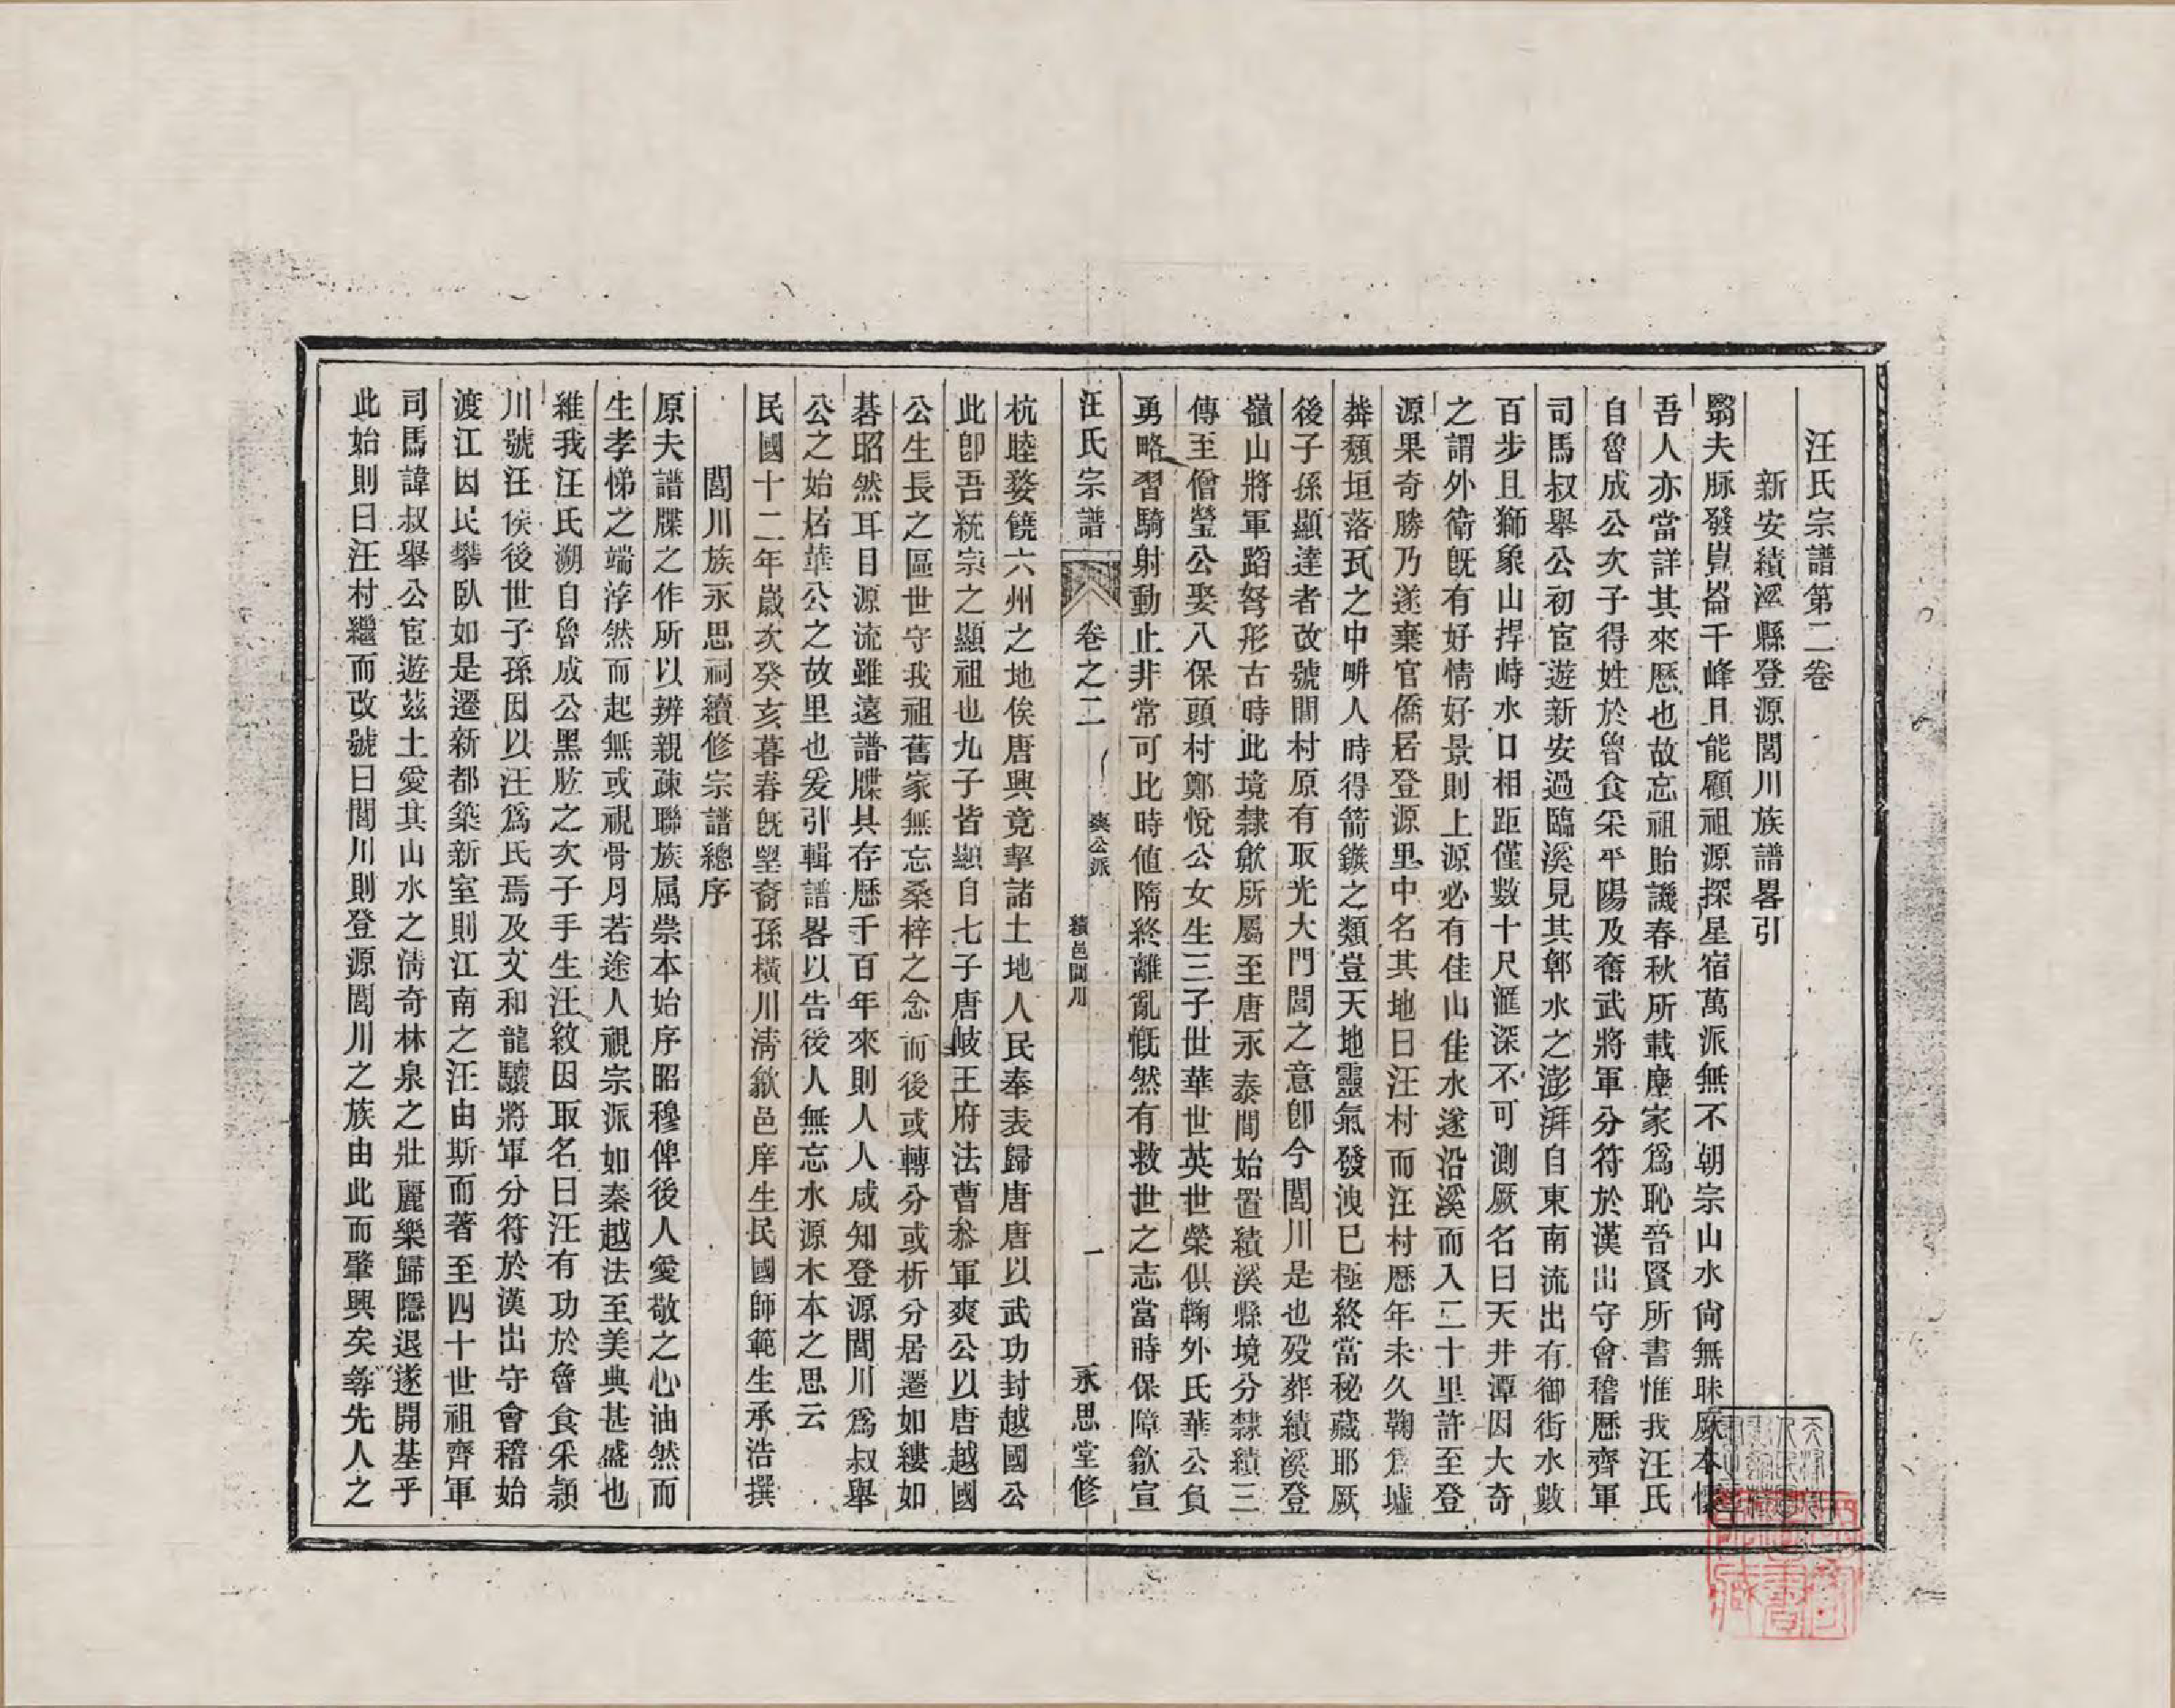 汪氏宗譜第二卷
新安績溪縣登源閭川族譜畧引
翳夫脉發崑崙千峰且能顧祖源探星宿萬派無不朝宗山水尙無昧厥本懷
吾人亦當詳其來歷也故忘祖貽譏春秋所載塵家爲恥晉賢所書惟我汪氏
自魯成公次子得姓於魯食采平陽及奮武將軍分符於漢出守會稽歷齊軍
司馬叔舉公初宦遊新安過臨溪見其鄣水之澎湃自東南流出有御街水數
百步且獅象山捍峙水口相距僅數十尺滙深不可測厥名曰天井潭因大奇
之謂外衛旣有好情好景則上源必有佳山佳水遂沿溪而入二十里許至登
源果奇勝乃遂棄官僑居登源里中名其地曰汪村而汪村歷年未久鞠爲墟
莽頹垣落瓦之中畊人時得箭鏃之類豈天地靈氣發洩已極終當秘藏耶厥
後子孫顯達者改號閭村原有取光大門閭之意卽今閭川是也歿葬績溪登
嶺山將軍蹈弩形古時此境隸歙所屬至唐永泰間始置績溪縣境分隸績三
傳至僧瑩公娶八保頭村鄭悅公女生三子世華世英世榮俱鞠外氏華公負
勇略習騎射動止非常可比時値隋終離亂慨然有救世之志當時保障歙宣
汪氏宗譜 卷之二 爽公派 績邑閭川 一 永思堂修
杭睦婺饒六州之地俟唐興竟挈諸土地人民奉表歸唐唐以武功封越國公
此卽吾統宗之顯祖也九子皆顯自七子唐岐王府法曹叅軍爽公以唐越國
公生長之區世守我祖舊家無忘桑梓之念而後或轉分或析分居遷如縷如
碁昭然耳目源流雖遠譜牒具存歷千百年來則人人咸知登源閭川爲叔舉
公之始居華公之故里也爰引輯譜畧以告後人無忘水源木本之思云
民國十二年歲次癸亥暮春旣朢裔孫橫川淸歙邑庠生民國師範生承浩撰
閭川族永思祠續修宗譜總序
原夫譜牒之作所以辨親疎聯族属崇本始序昭穆俾後人愛敬之心油然而
生孝悌之端浡然而起無或視骨月若途人視宗派如秦越法至美典甚盛也
維我汪氏溯自魯成公黑肱之次子手生汪紋因取名曰汪有功於魯食采潁
川號汪侯後世子孫因以汪爲氏焉及文和龍驤將軍分符於漢出守會稽始
渡江因民攀臥如是遷新都築新室則江南之汪由斯而著至四十世祖齊軍
司馬諱叔舉公宦遊茲土愛其山水之淸奇林泉之壯麗樂歸隱退遂開基乎
此始則曰汪村繼而改號曰閭川則登源閭川之族由此而肇興矣尋先人之